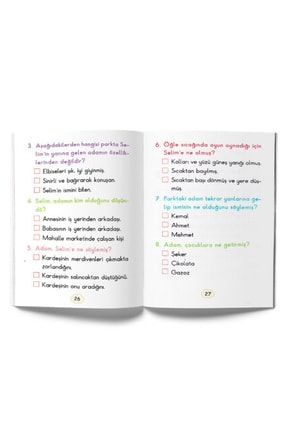 3. Aşağıdakilerden hangisi parkta Se-
lim'in yanına gelen adamın özellik-
lerinden değildir?
Elbiseleri şık, iyi giyinmiş.
Sinirli ve bağırarak konuşan.
Selim'in ismini bilen.
4. Selim, adamın kim olduğunu düşün-
dü?
Annesinin iş yerinden arkadaşı.
Babasının iş yerinden arkadaşı.
Mahalle marketinde çalışan kişi
5. Adam, Selim'e ne söylemiş?
Kardeşinin merdivenleri çıkmakta
zorlandığını.
Kardeşinin salıncaktan düştüğünü.
Kardeşinin onu aradığını.
26
6. Öğle sıcağında oyun oynadığı için
Selim'e ne olmuş?
Kolları ve yüzü güneş yanığı olmuş.
Sıcaktan bayılmış.
Sıcaktan başı dönmüş ve yere düş-
müş.
7. Parktaki adam tekrar yanlarına ge-
lip isminin ne olduğunu söylemiş?
Kemal
Ahmet
Mehmet
8. Adam, çocuklara ne getirmiş?
Şeker
Çikolata
Gazoz
27